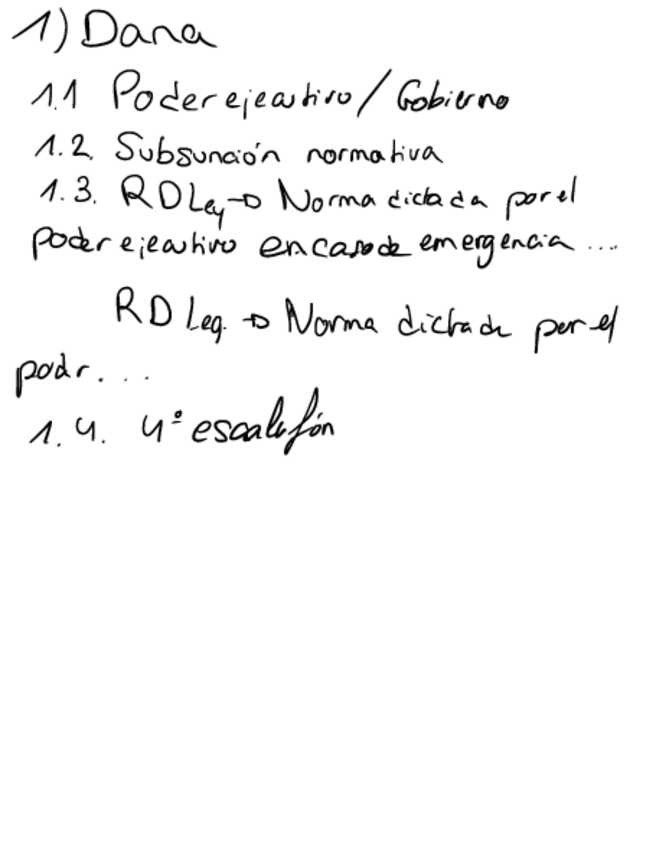 1) Dana
1.1 Poder ejecutivo / Gobierno
1.2. Subsunción normativa
1.3. RDLey → Norma dictada por el
poder ejecutivo en caso de emergencia ...
RD Leg. → Norma dictada por el
podr. ...
1.4. 4º escalafón